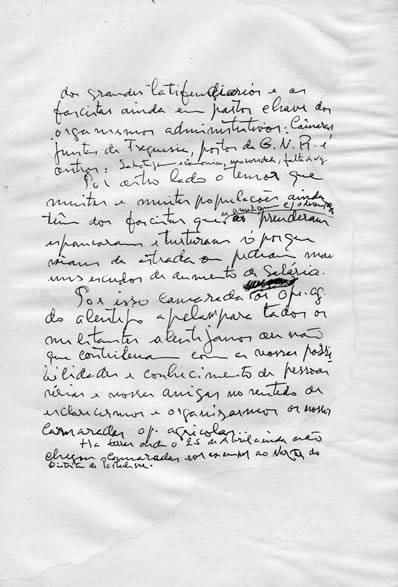 dos grandes latifundiarios e os
facistas ainda em postos chave dos
organismos administrativos: Câmaras
Juntas de Freguesia, postos da G.N.R. e
outros: Sabotagem económica,
Por outro lado o temor que
muitas e muitas populações ainda
têm dos facistas que os prenderam
espancaram e turturam só porque
de estrada ou pediam mais
uns escudos de aumento de Salário.
Por isso camaradas os Op. ag.
do alentejo apelam para todos os
militantes alentejanos ou não
que contribuam com as vossas possi
bilidades e conhecimento de pessoas
e vossas amigas no sentido de
esclarecermos e organizarmos os nossos
camaradas op. agricolas...
Ha terras onde o 25 de Abril ainda não
chegou camaradas por exemplo ao Norte do
Distrito de